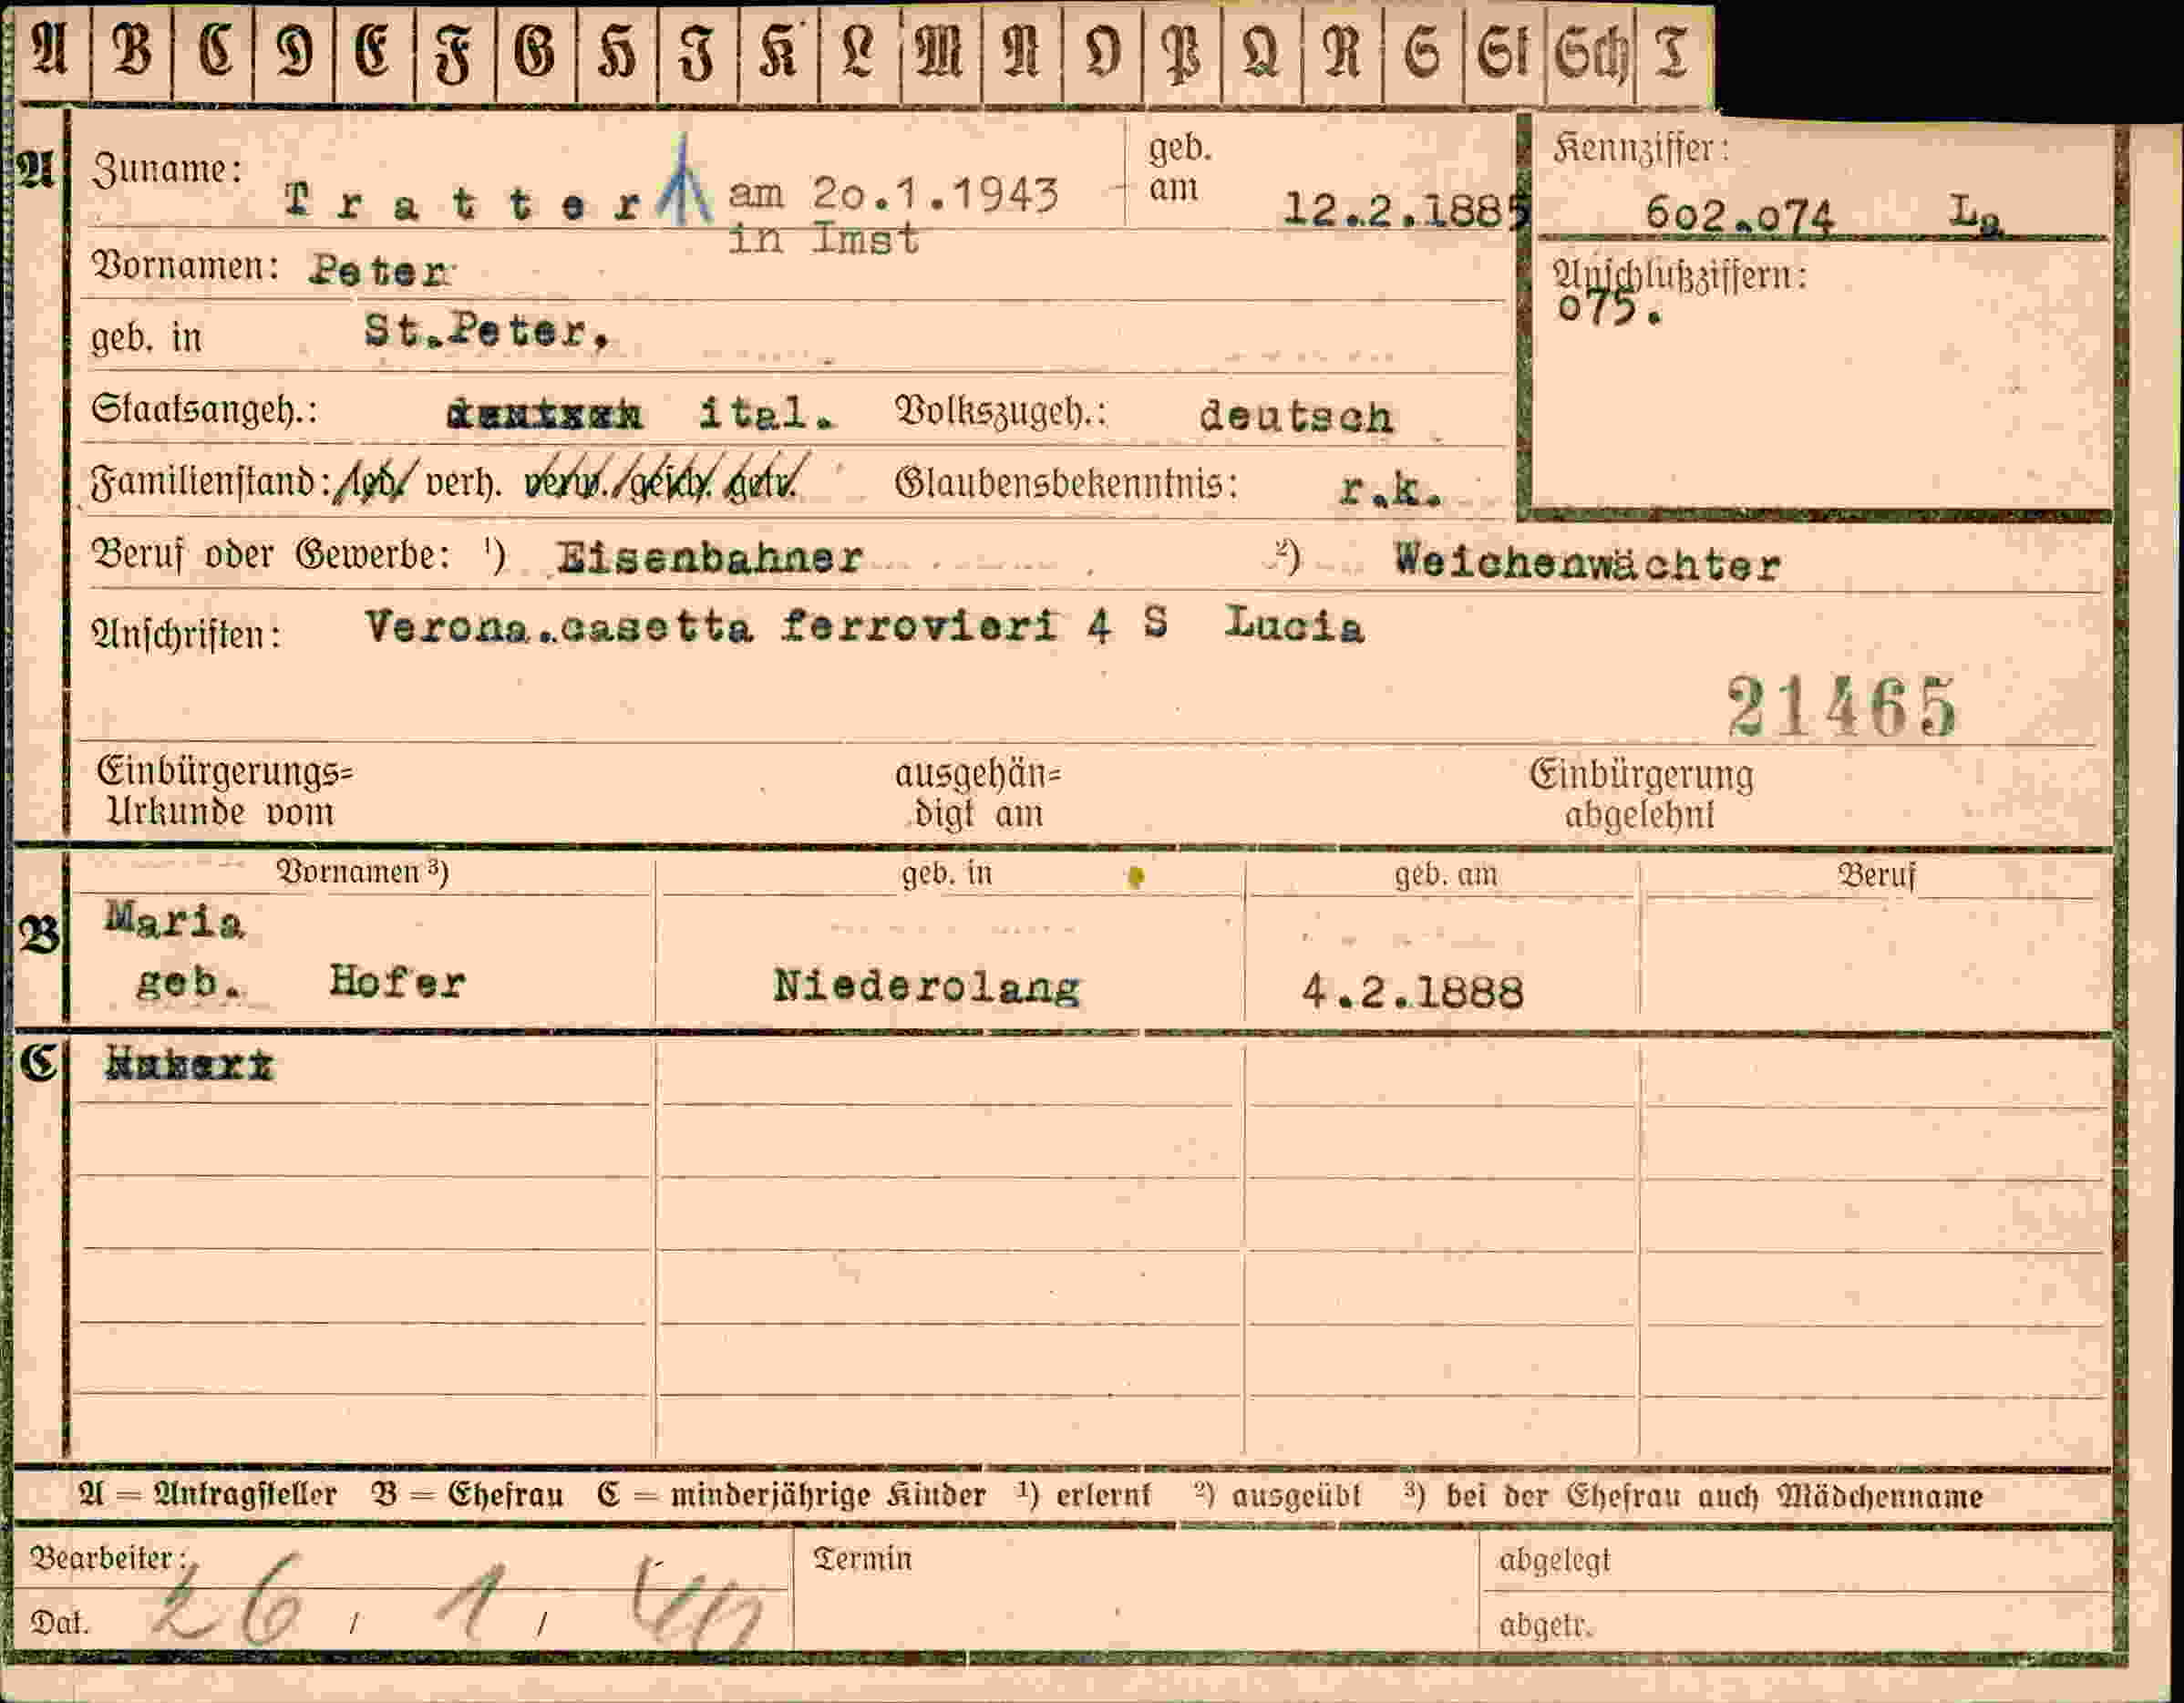 A B C D E F G H J K L M N O P Q R S St Sch T
A Zuname: Tratter am 20.1.1943 geb. am 12.2.1885 Kennziffer: 602.074 La
in Imst
Vornamen: Peter Anschlußziffern:
075.
geb. in St.Peter,
Staatsangeh.: ital. Volkszugeh.: deutsch
Familienstand: led. verh. verw. gesch. getr. Glaubensbekenntnis: r.k.
Beruf oder Gewerbe: ¹) Eisenbahner ²) Weichenwächter
Anschriften: Verona.casetta ferrovieri 4 S Lucia
21465
Einbürgerungs= ausgehän= Einbürgerung
Urkunde vom digt am abgelehnt
Vornamen ³) geb. in geb. am Beruf
B Maria
geb. Hofer Niederolang 4.2.1888
C
A = Antragsteller B = Ehefrau C = minderjährige Kinder ¹) erlernt ²) ausgeübt ³) bei der Ehefrau auch Mädchenname
Bearbeiter: Termin abgelegt
Dat. 26 / 1 / 40 abgetr.